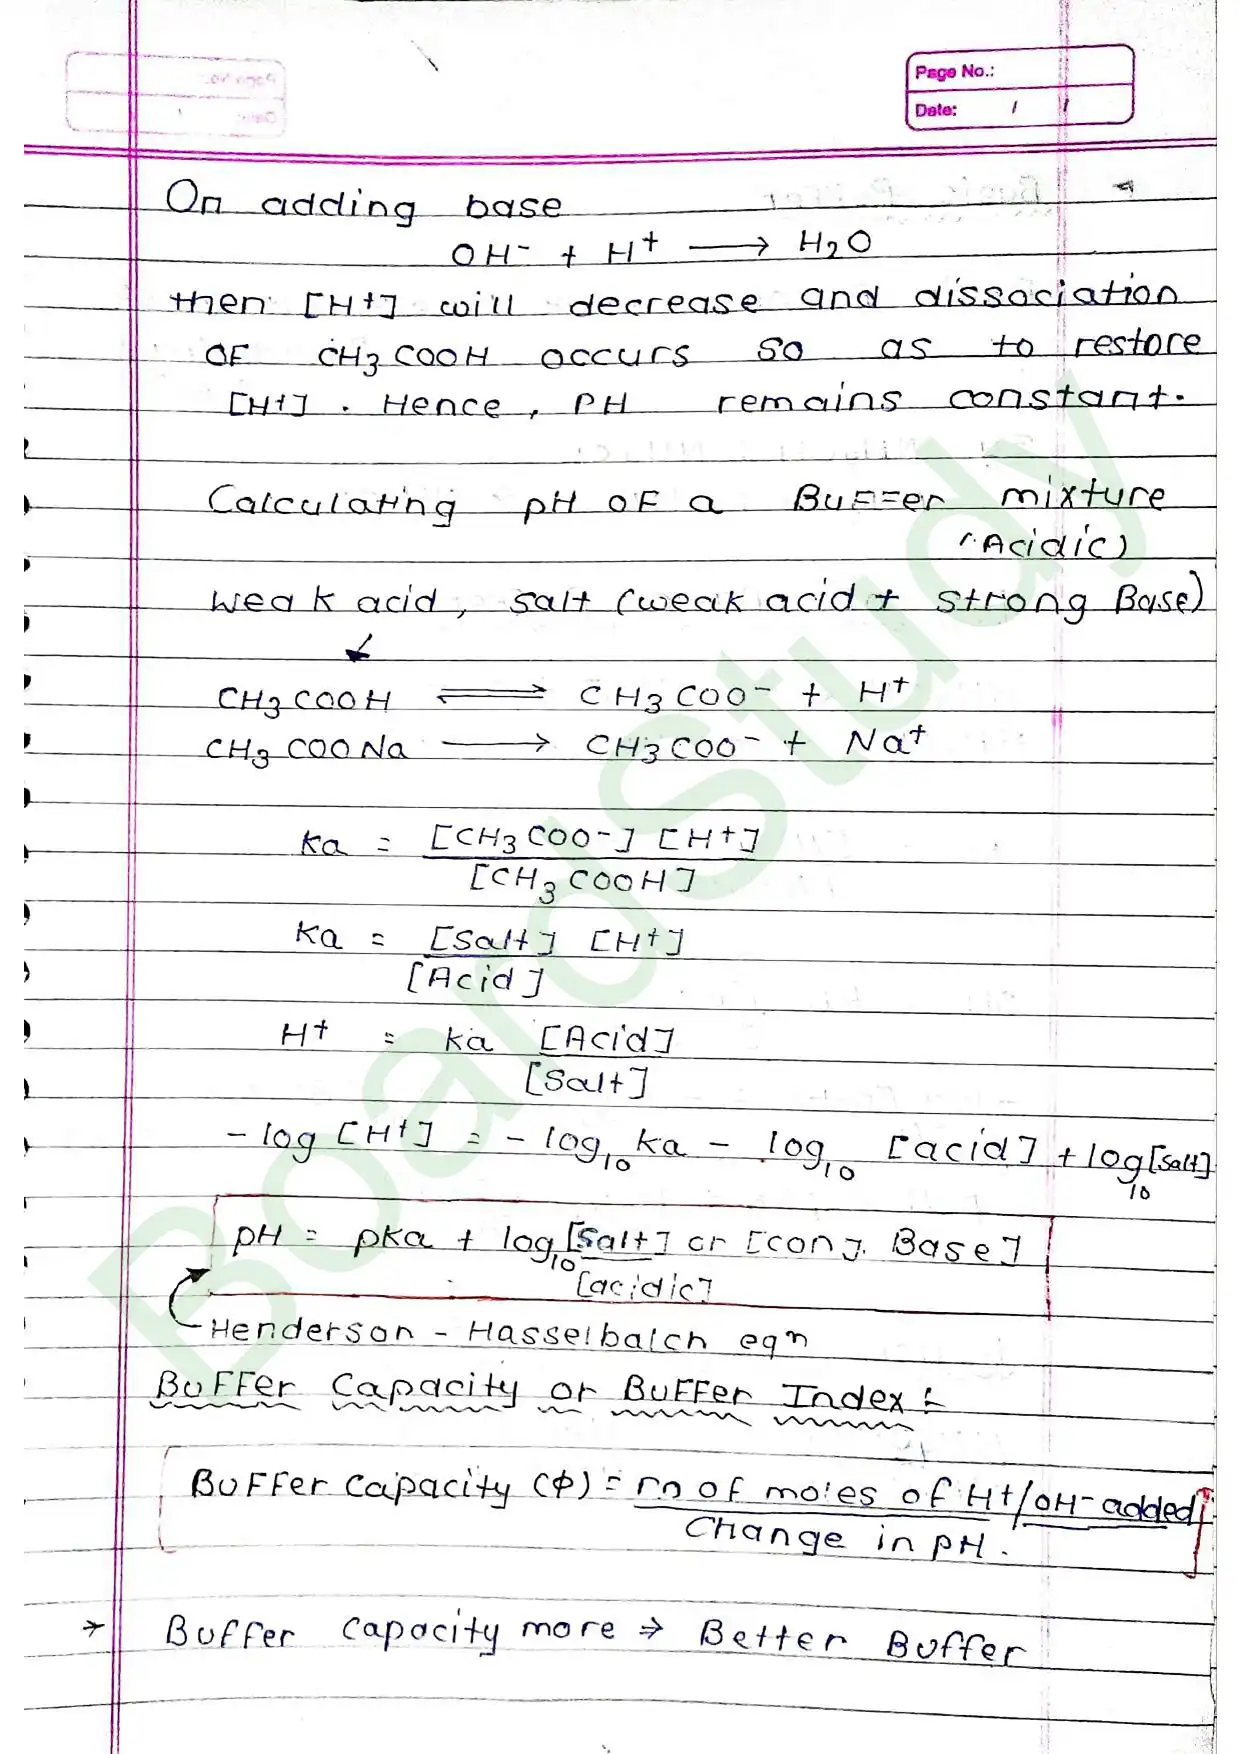 Page No.:
Date: / /
On adding base
OH⁻ + H⁺ ⟶ H₂O
then [H⁺] will decrease and dissociation
of CH₃COOH occurs so as to restore
[H⁺]. Hence, PH remains constant.
Calculating pH of a Buffer mixture
(Acidic)
weak acid, salt (weak acid + strong Base)
↙
CH₃COOH ⇌ CH₃COO⁻ + H⁺
CH₃COONa ⟶ CH₃COO⁻ + Na⁺
Ka = [CH₃COO⁻] [H⁺]
[CH₃COOH]
Ka = [Salt] [H⁺]
[Acid]
H⁺ = Ka [Acid]
[Salt]
-log [H⁺] = -log₁₀ Ka - log₁₀ [acid] + log₁₀ [Salt]
pH = pKa + log₁₀ [Salt] or [conj. Base]
[acidic]
Henderson - Hasselbalch eqⁿ
Buffer Capacity or Buffer Index :-
Buffer capacity (ϕ) = no of moles of H⁺/OH⁻ added
Change in pH.
* Buffer capacity more ⇒ Better Buffer
BoardStudy